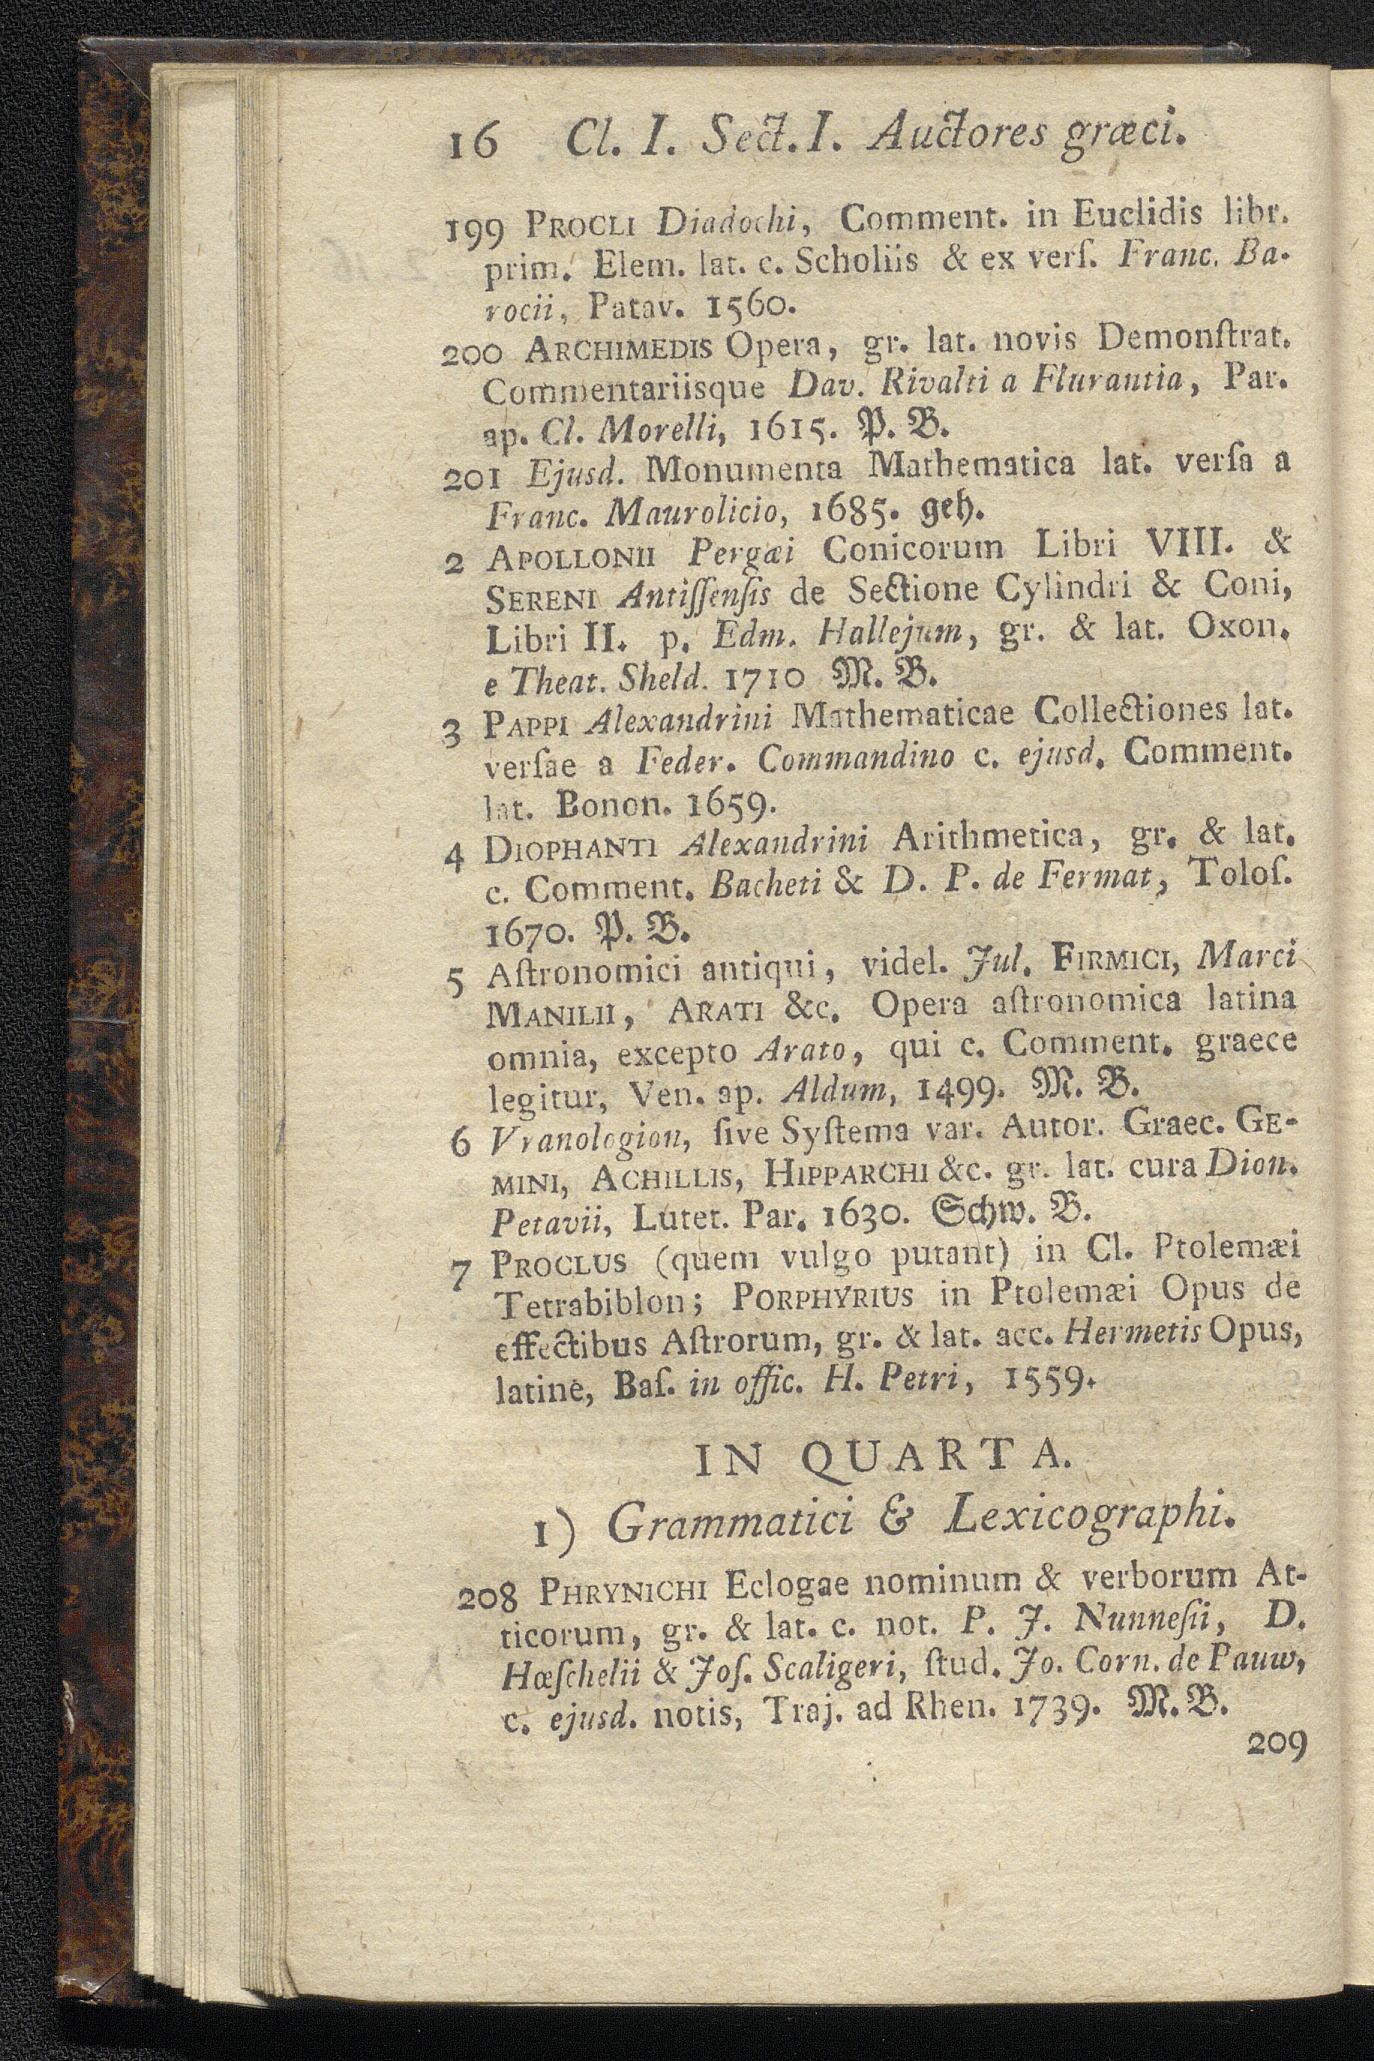 16 Cl. I. Sect. I. Auctores græci.
199 PROCLI Diadochi, Comment. in Euclidis libr.
prim. Elem. lat. c. Scholiis & ex verſ. Franc. Ba-
rocii, Patav. 1560.
200 ARCHIMEDIS Opera, gr. lat. novis Demonſtrat.
Commentariisque Dav. Rivalti a Flurantia, Par.
ap. Cl. Morelli, 1615. P. B.
201 Ejusd. Monumenta Mathematica lat. verſa a
Franc. Maurolicio, 1685. geh.
2 APOLLONII Pergæi Conicorum Libri VIII. &
SERENI Antiſſenſis de Sectione Cylindri & Coni,
Libri II. p. Edm. Hallejum, gr. & lat. Oxon.
e Theat. Sheld. 1710 M. B.
3 PAPPI Alexandrini Mathematicae Collectiones lat.
verſae a Feder. Commandino c. ejusd. Comment.
lat. Bonon. 1659.
4 DIOPHANTI Alexandrini Arithmetica, gr. & lat.
c. Comment. Bacheti & D. P. de Fermat, Toloſ.
1670. P. B.
5 Aſtronomici antiqui, videl. Jul. FIRMICI, Marci
MANILII, ARATI &c. Opera aſtronomica latina
omnia, excepto Arato, qui c. Comment. graece
legitur, Ven. ap. Aldum, 1499. M. B.
6 Vranologion, ſive Syſtema var. Autor. Graec. GE-
MINI, ACHILLIS, HIPPARCHI &c. gr. lat. cura Dion.
Petavii, Lutet. Par. 1630. Schw. B.
7 PROCLUS (quem vulgo putant) in Cl. Ptolemæi
Tetrabiblon; PORPHYRIUS in Ptolemæi Opus de
effectibus Aſtrorum, gr. & lat. acc. Hermetis Opus,
latine, Baſ. in offic. H. Petri, 1559.
IN QUARTA.
1) Grammatici & Lexicographi.
208 PHRYNICHI Eclogae nominum & verborum At-
ticorum, gr. & lat. c. not. P. J. Nunneſii, D.
Hœſchelii & Joſ. Scaligeri, ſtud. Jo. Corn. de Pauw,
c. ejusd. notis, Traj. ad Rhen. 1739. M. B.
209